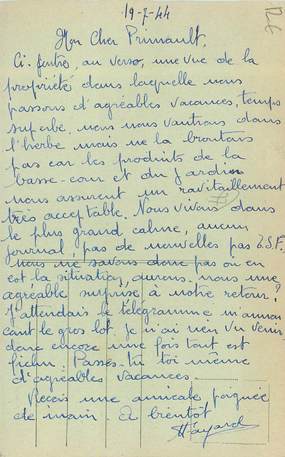 19-7-44
Mon Cher Primault,
Ci-joint, au verso, une vue de la
propriété dans laquelle nous
passons d'agréables vacances, temps
superbe, nous nous vautrons dans
l'herbe mais ne la broutons
pas car les produits de la
basse-cour et du jardin
nous assurent un ravitaillement
très acceptable. Nous vivons dans
le plus grand calme, aucun
journal, pas de nouvelles pas T.S.F.
Nous ne savons donc pas où en
est la situation, aurons-nous une
agréable surprise à notre retour?
J'attendais le télégramme m'annon
cant le gros lot. Je n'ai rien vu venir
donc encore une fois tout est
fichu. Passes-tu toi même
d'agréables vacances.
Reçois une amicale poignée
de main. à bientôt